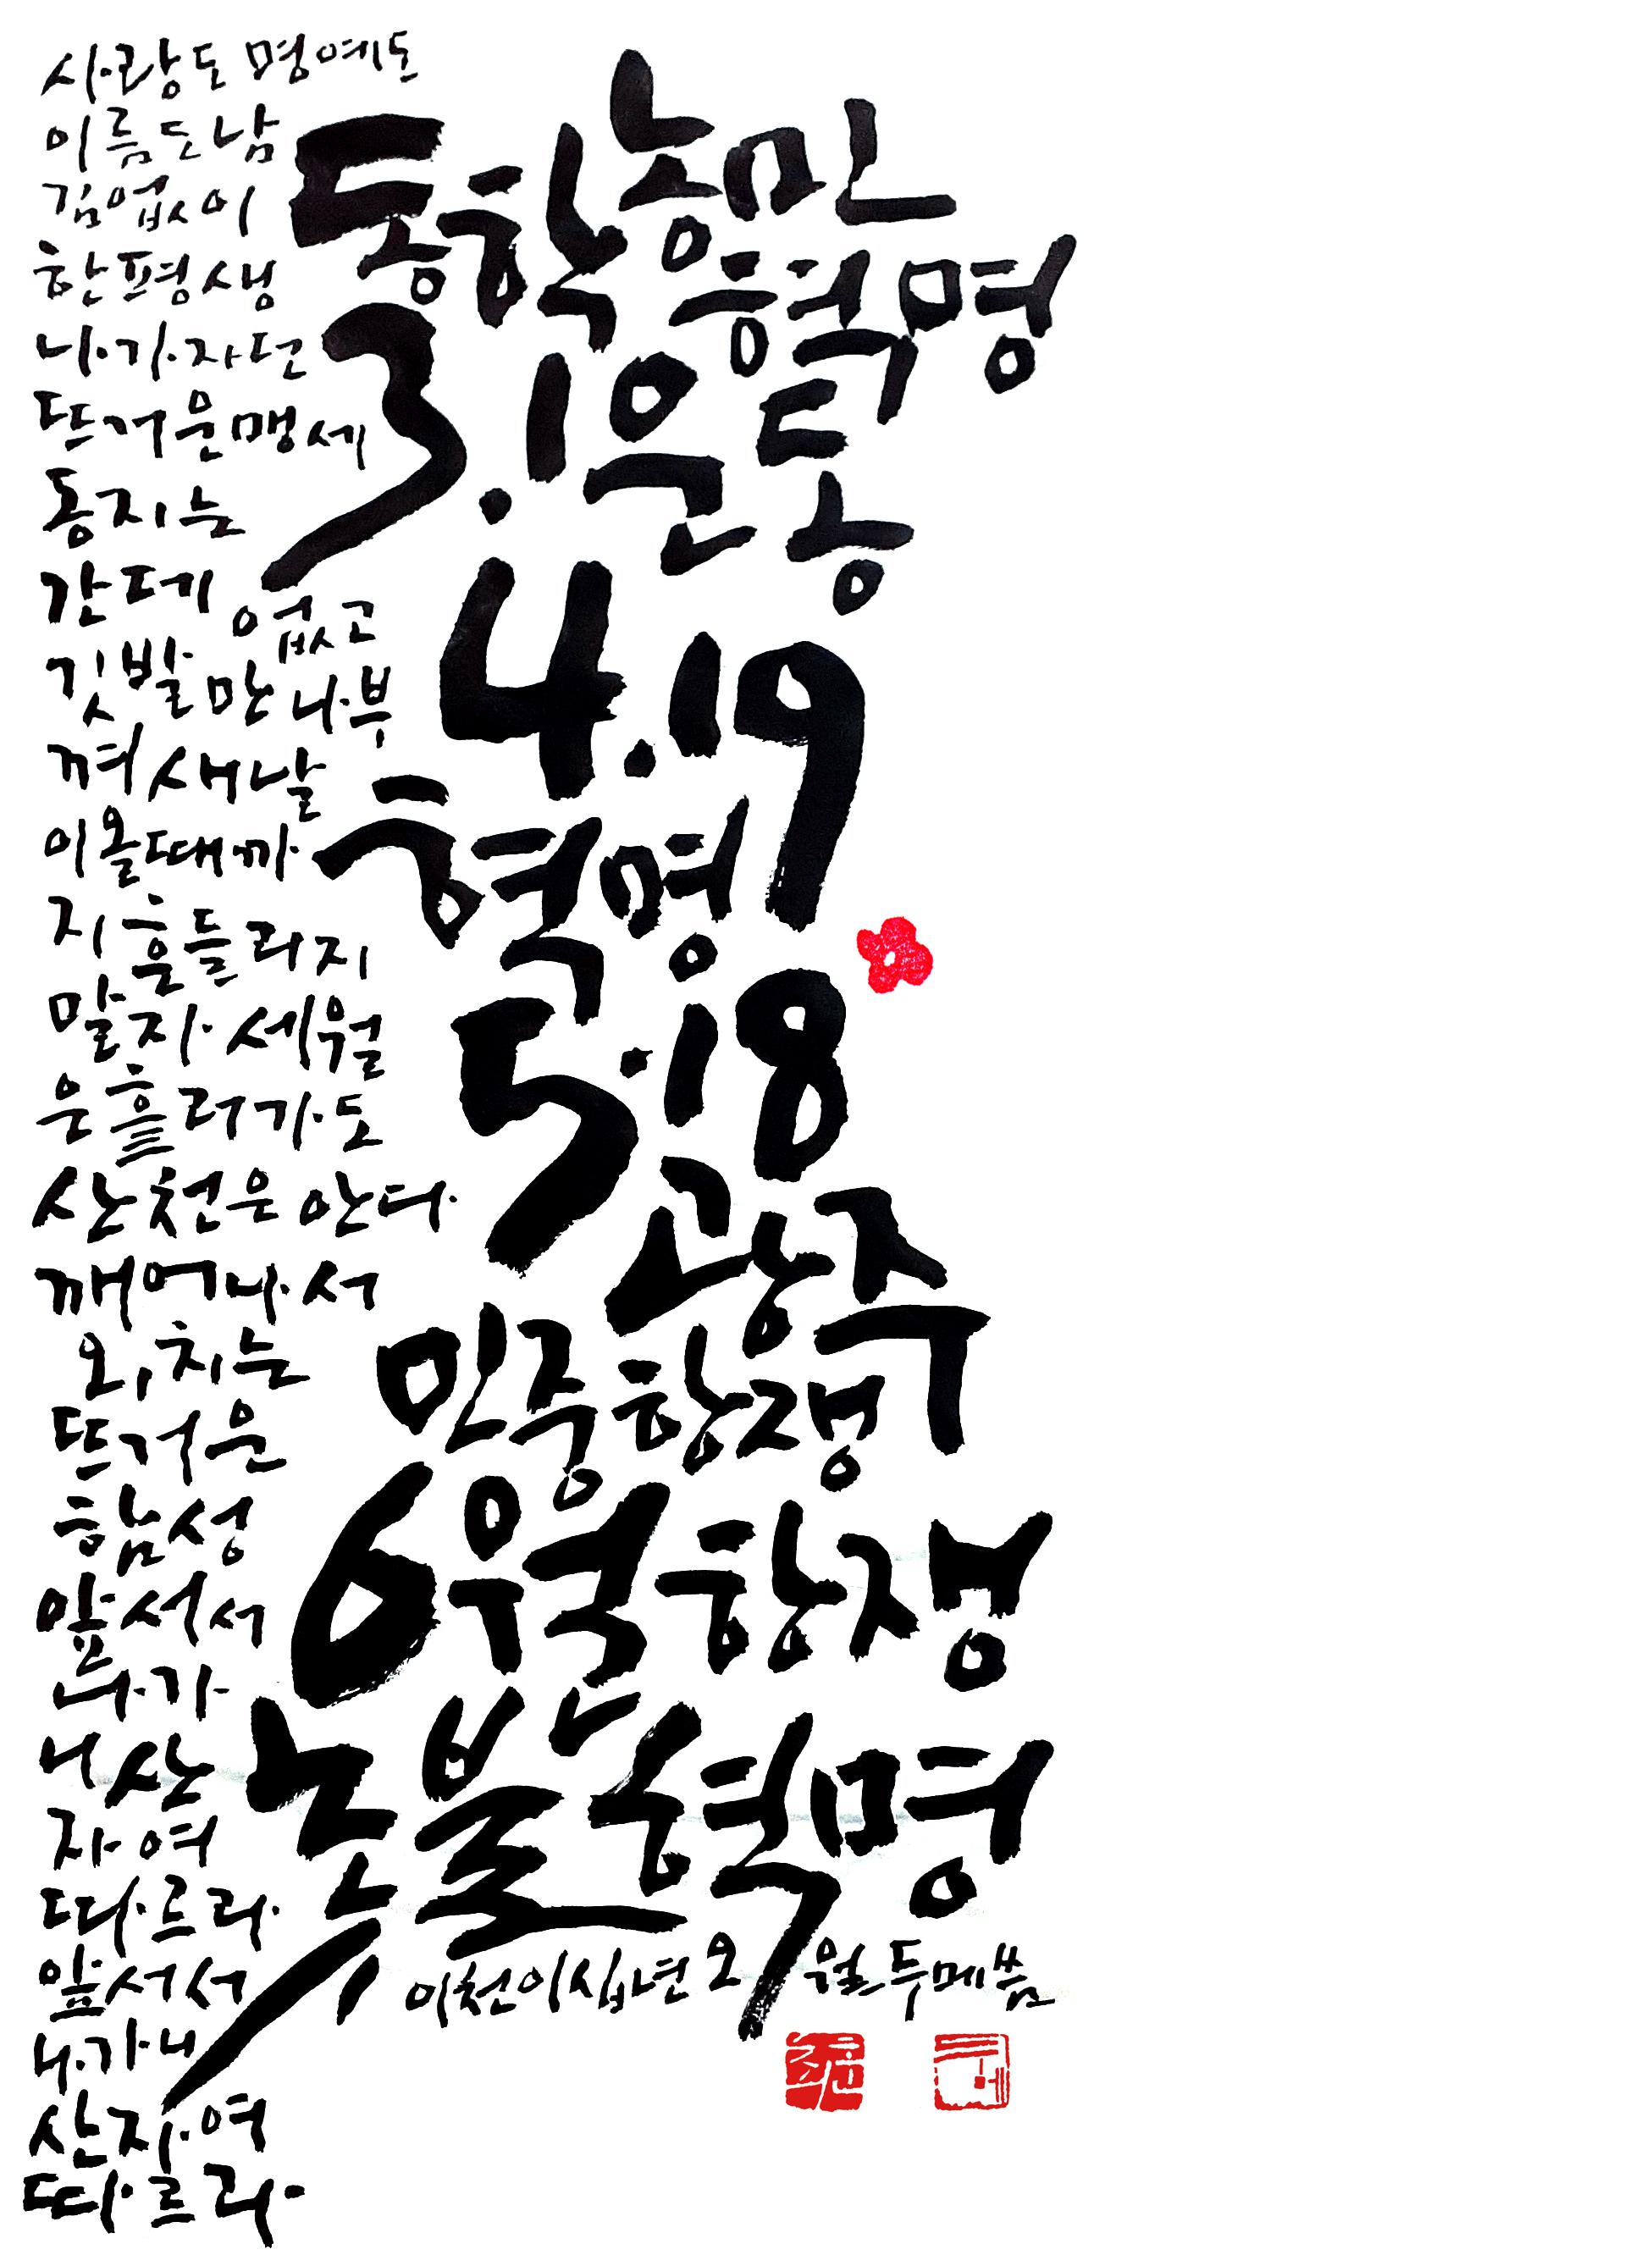 사랑도 명예도
이름도 남
김없이
한평생
나가자던
뜨거운 맹세
동지는
간데 없고
깃발만 나부
껴 새날
이 올때까
지 흔들리지
말자 세월
은 흘러가도
산천은 안다
깨어나서
외치는
뜨거운
함성
앞서서
나가
니 산
자여
따르라
앞서서
나가니
산자여
따르라
동학농민
혁명
3.1운동
4.19
혁명
5.18
광주
민중항쟁
6월항쟁
촛불혁명
이천이십년 오월 두메 씀
두메